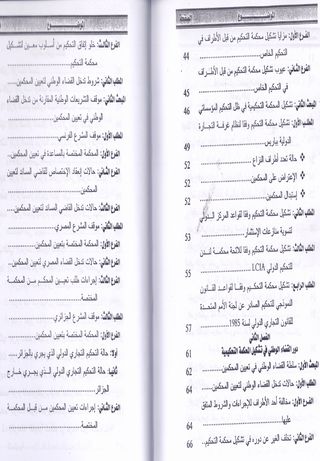 الموضـــــوع
الصفحة
الفرع الأول: مزايا تشكيل محكمة التحكيم من قبل الأطراف في
التحكيم الخاص 44
الفرع الثاني: عيوب تشكيل محكمة التحكيم من قبل الأطراف
في التحكيم الخاص 45
المبحث الثاني: تشكيل المحكمة التحكيمية في ظل التحكيم المؤسساتي 46
المطلب الأول: تشكيل محكمة التحكيم وفقا لنظام غرفة التجارة
الدولية بباريس 49
حالة تعدد أطراف النزاع 52
الإعتراض على المحكمين 52
إستبدال المحكمين 52
المطلب الثاني: تشكيل محكمة التحكيم وفقا لقواعد المركز الدولي
لتسوية منازعات الإستثمار 53
المطلب الثالث: تشكيل محكمة التحكيم وفقا للائحة محكمة لندن
للتحكيم الدولي LCIA 55
المطلب الرابع: تشكيل محكمة التحكيم وفقا لقواعد القانون
النموذجي للتحكيم الصادر عن لجنة الأمم المتحدة
للقانون التجاري الدولي لسنة 1985 57
الفصل الثاني
دور القضاء الوطني في تشكيل المحكمة التحكيمية 61
المبحث الأول: سلطة القضاء الوطني في تعيين المحكمين 62
المطلب الأول: حالات تدخل القضاء الوطني لتعيين المحكمين 62
الفرع الأول: مخالفة أحد الأطراف للإجراءات والشروط المتفق
عليها 64
الفرع الثاني: تخلف الغير عن دوره في تشكيل محكمة التحكيم 66
الموضـــــوع
الفرع الثالث: خلو إتفاق التحكيم من أسلوب معين لتشكيل
محكمة التحكيم
المطلب الثاني: شروط تدخل القضاء الوطني لتعيين المحكمين
المبحث الثاني: موقف التشريعات الوطنية المقارنة من تدخل القضاء
الوطني في تعيين المحكمين
المطلب الأول: موقف المشرع الفرنسي
الفرع الأول: المحكمة المختصة بالمساعدة في تعيين المحكمين
الفرع الثاني: حالات إنعقاد الإختصاص للقاضي المساند لتعيين
المحكمين
الفرع الثالث: حالات تدخل القاضي المساند لتعيين المحكمين
المطلب الثاني: موقف المشرع المصري
الفرع الأول: المحكمة المختصة بتعيين المحكمين
الفرع الثاني: حالات تدخل القضاء المصري لتعيين المحكمين
الفرع الثالث: إجراءات طلب تعيين المحكم من المحكمة
المختصة
المطلب الثالث: موقف المشرع الجزائري
الفرع الأول: المحكمة المختصة بتعيين المحكمين
أولا: حالة التحكيم التجاري الدولي الذي يجري بالجزائر
ثانيا: حالة التحكيم التجاري الدولي الذي يجري خارج
الجزائر
الفرع الثاني: إجراءات تعيين المحكمين من قبل المحكمة
المختصة